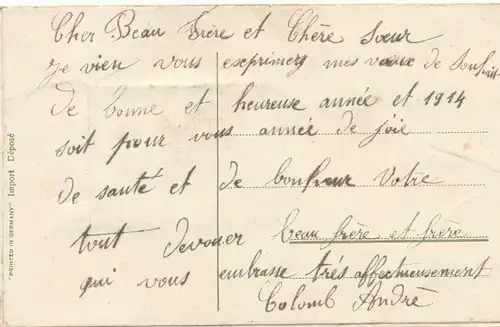 Cher Beau Frère et Chère Sœur
Je vien vous exprimer mes vœux de Souhait
de bonne et heureuse année et 1914
soit pour vous année de joie
de santé et de bonheur Votre
tout devouer beau frère et frère
qui vous embrasse très affectueusement
Colomb André
"PRINTED IN GERMANY" Import Déposé